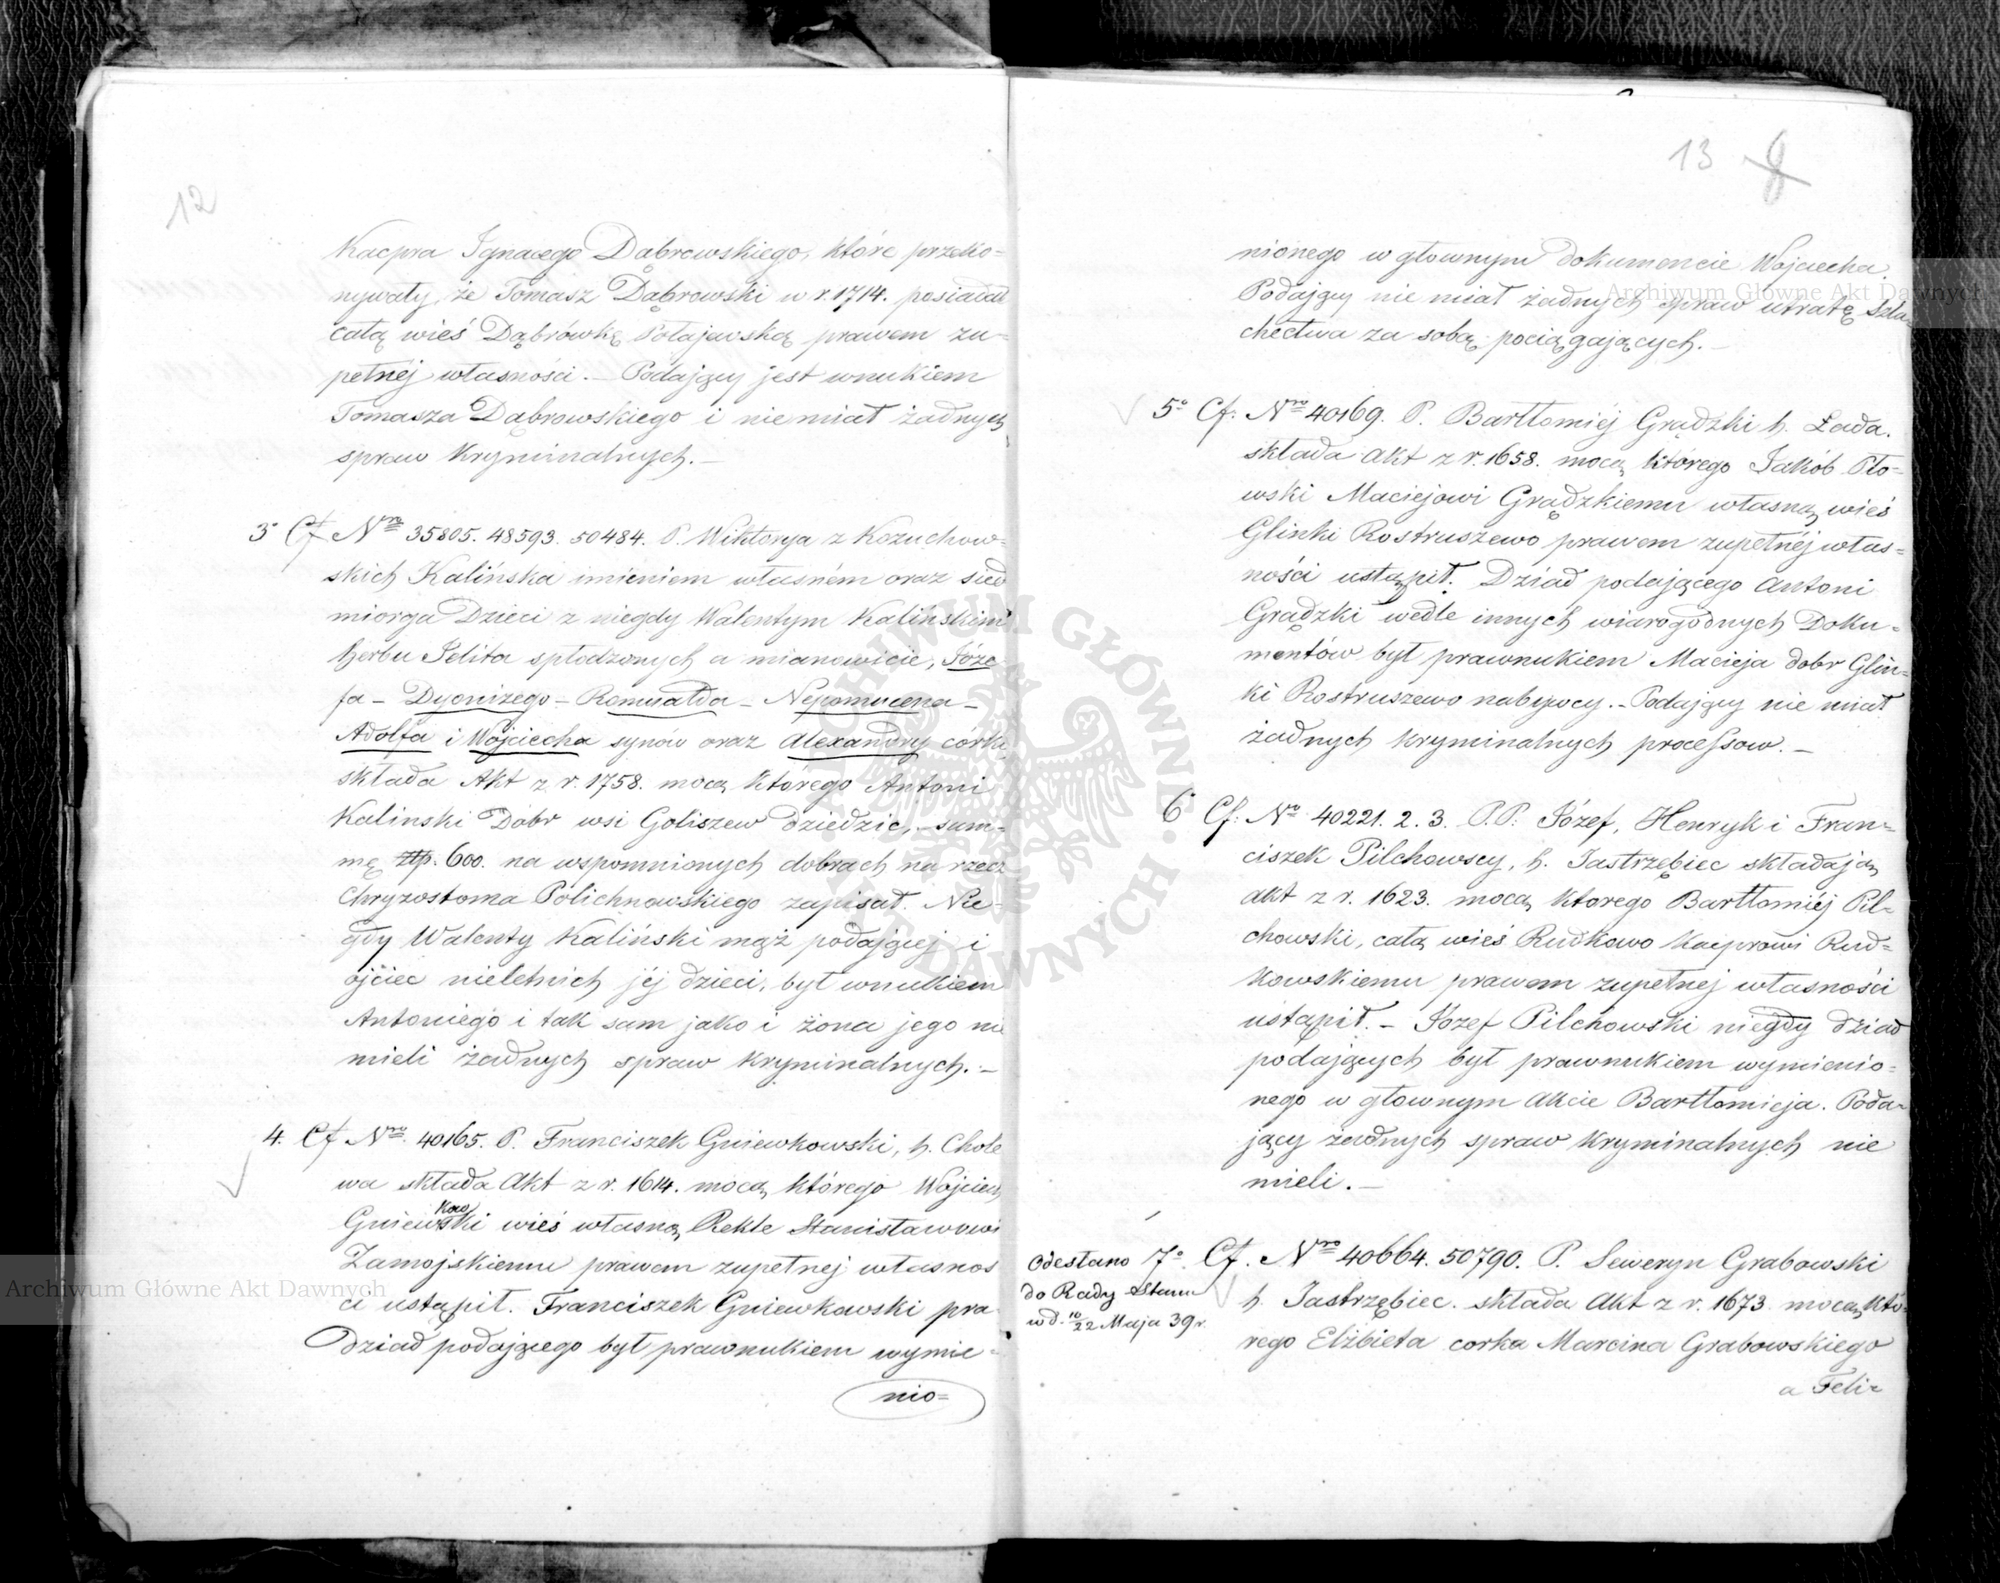 12
Kacpra Ignacego Dąbrowskiego, które przeko-
nywały, że Tomasz Dąbrowski w r. 1714. posiadał
całą wieś Dąbrówkę Połajewską prawem zu-
pełnéj własności. — Podający jest wnukiem
Tomasza Dąbrowskiego i nie miał żadnych
spraw kryminalnych. —
3° Cf Nro 35805. 48593. 50484. P. Wiktorya z Kozuchow-
skich Kalińska imieniem własném oraz sied
miorga Dzieci z niegdy Walentym Kalińskim
herbu Jelita spłodzonych a mianowicie, Józe
fa – Dyonizego – Romualda – Nepomucena –
Adolfa i Wojciecha synów oraz Alexandry córki
składa Akt z r. 1758. mocą którego Antoni
Kalinski Dóbr wsi Goliszew dziedzic, sum-
mę złp. 600. na wspomnionych dobrach na rzecz
Chryzostoma Polichnowskiego zapisał. Nie-
gdy Walenty Kaliński mąż podającej i
ojciec nieletnich jéj dzieci, był wnukiem
Antoniego i tak sam jako i żona jego nie
mieli żadnych spraw kryminalnych. —
4. Cf Nro 40165. P. Franciszek Gniewkowski, h. Chole
wa składa Akt z r. 1614. mocą którego Wojciech
kow
Gniewski wieś własną Rekle Stanisławowi
Zamojskiemu prawem zupełnej własnos
ci ustąpił. Franciszek Gniewkowski pra
dziad podającego był prawnukiem wymie-
nio-
13 8
nionego w głownym dokumencie Wojciecha.
Podający nie miał żadnych spraw utratę Szla-
chectwa za sobą pociągających. —
5° Cf. Nro 40169. P. Bartłomiéj Grądzki h. Łada.
składa akt z r. 1658. mocą którego Jakób Pło-
wski Maciejowi Grądzkiemu własną wieś
Glinki Rostruszewo prawem zupełnéj włas-
ności ustąpił. Dziad podającego Antoni
Grądzki wedle innych wiarogodnych Doku-
mentów był prawnukiem Macieja dobr Glin-
ki Rostruszewo nabywcy. – Podający nie miał
żadnych kryminalnych processow. —
6° Cf. No 40221. 2. 3. P.P. Józef, Henryk i Fran-
ciszek Pilchowscy, h. Jastrzębiec składają
akt z r. 1623. mocą ktorego Bartłomiéj Pil-
chowski, całą wieś Rudkowo Kacprowi Rud-
kowskiemu prawem zupełnej własności
ustąpił. – Józef Pilchowski niegdy dziad
podających był prawnukiem wymienio-
nego w głownym akcie Bartłomieja. Poda-
jący żadnych spraw kryminalnych nie
mieli. —
odesłano
do Rady Stanu
w d. 10/22 Maja 39 r.
7° Cf. Nro 40664. 50790. P. Seweryn Grabowski
h. Jastrzębiec. składa Akt z r. 1673. mocą któ-
rego Elżbieta corka Marcina Grabowskiego
a Feli-
Archiwum Główne Akt Dawnych
Archiwum Główne Akt Dawnych
ARCHIWUM GŁÓWNE AKT DAWNYCH